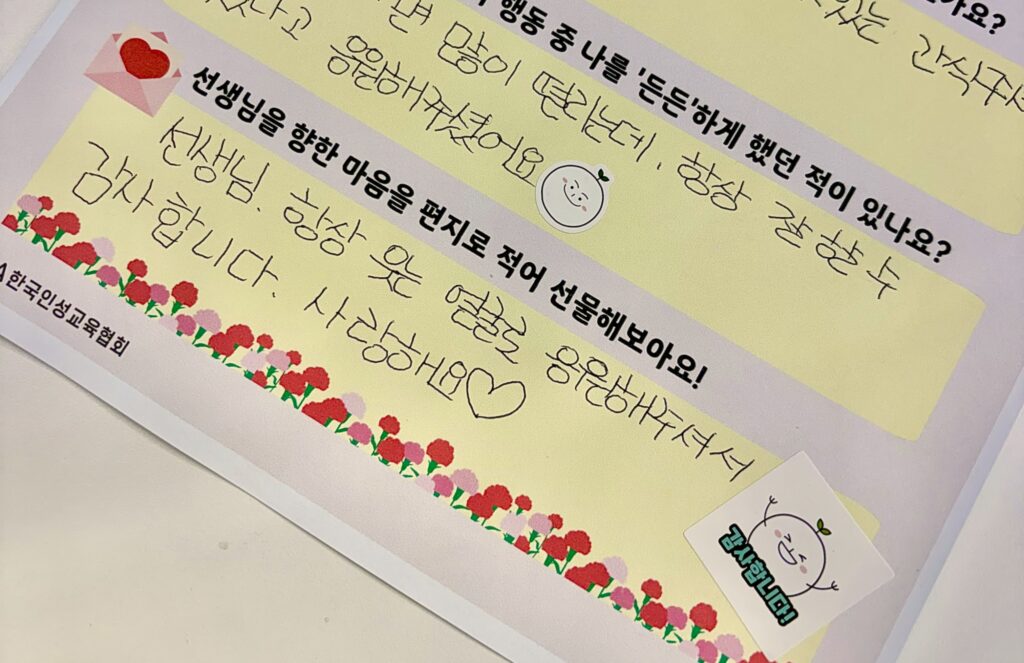 있는 간식
행동 중 나를 '든든'하게 했던 적이 있나요?
많이 떨리는데, 항상 잘할 수
있다고 응원해주셨어요
선생님을 향한 마음을 편지로 적어 선물해보아요!
선생님. 항상 웃는 얼굴로 응원해주셔서
감사합니다. 사랑해요♡
한국인성교육협회
감사합니다!